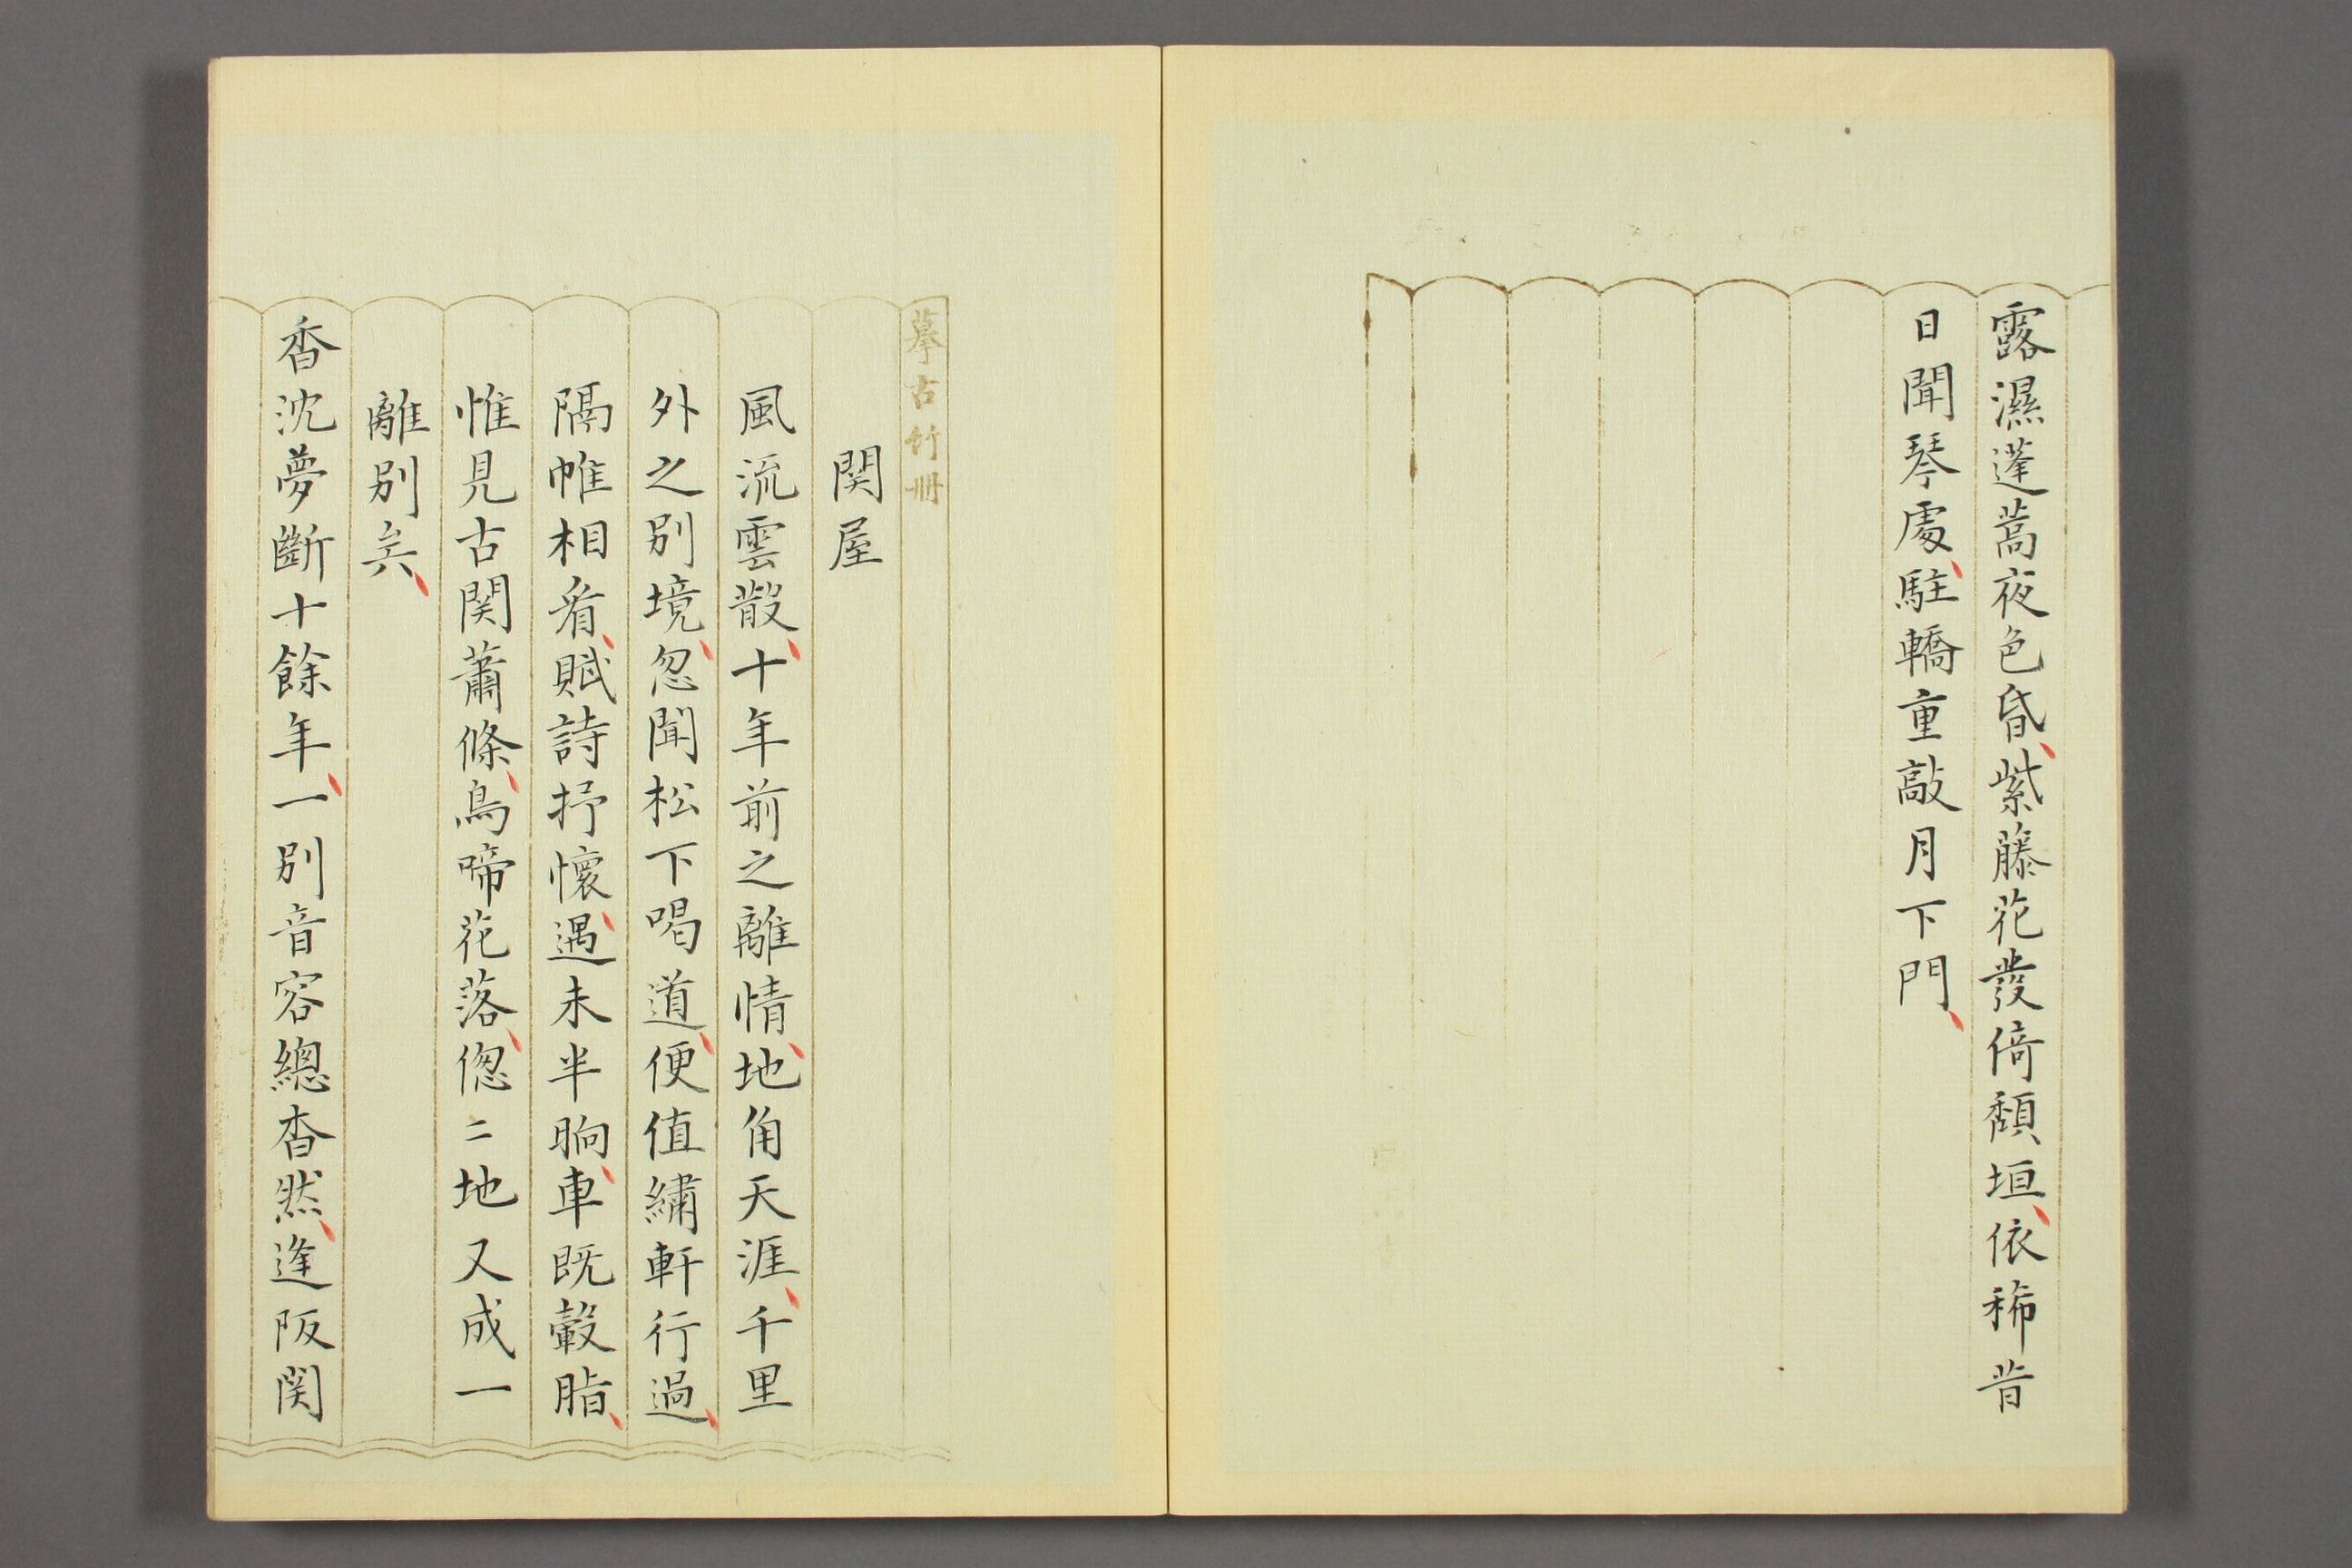 露濕蓬蒿夜色昏、紫藤花發倚頽垣、依稀昔
日聞琴處、駐轎重敲月下門、
摹古竹冊
関屋
風流雲散、十年前之離情、地角天涯、千里
外之別境、忽聞松下喝道、便值繡軒行過、
隔帷相看、賦詩抒懷、遇未半晌、車既轂脂、
惟見古関蕭條、鳥啼花落、偬〻地又成一
離別矣、
香沈夢斷十餘年、一別音容總杳然、逢阪関